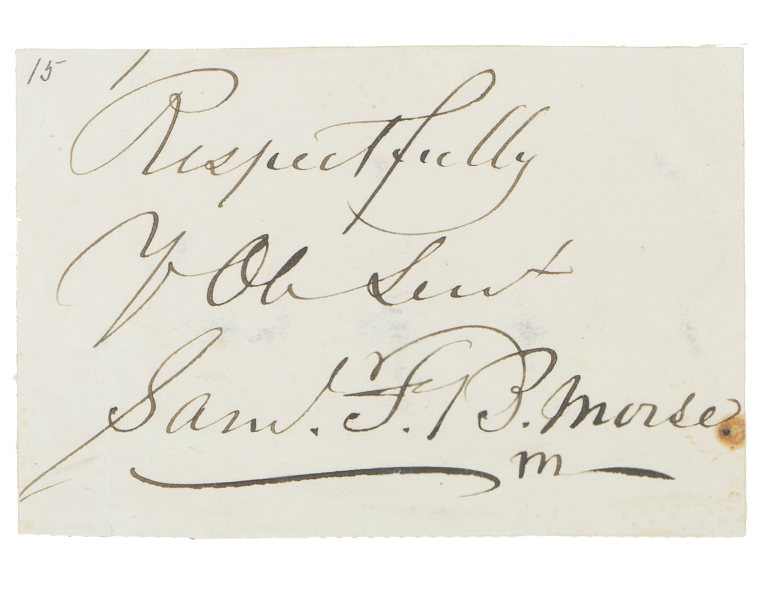 15
Respectfully
Yr Ob Servt
Saml. F. B. Morse
m